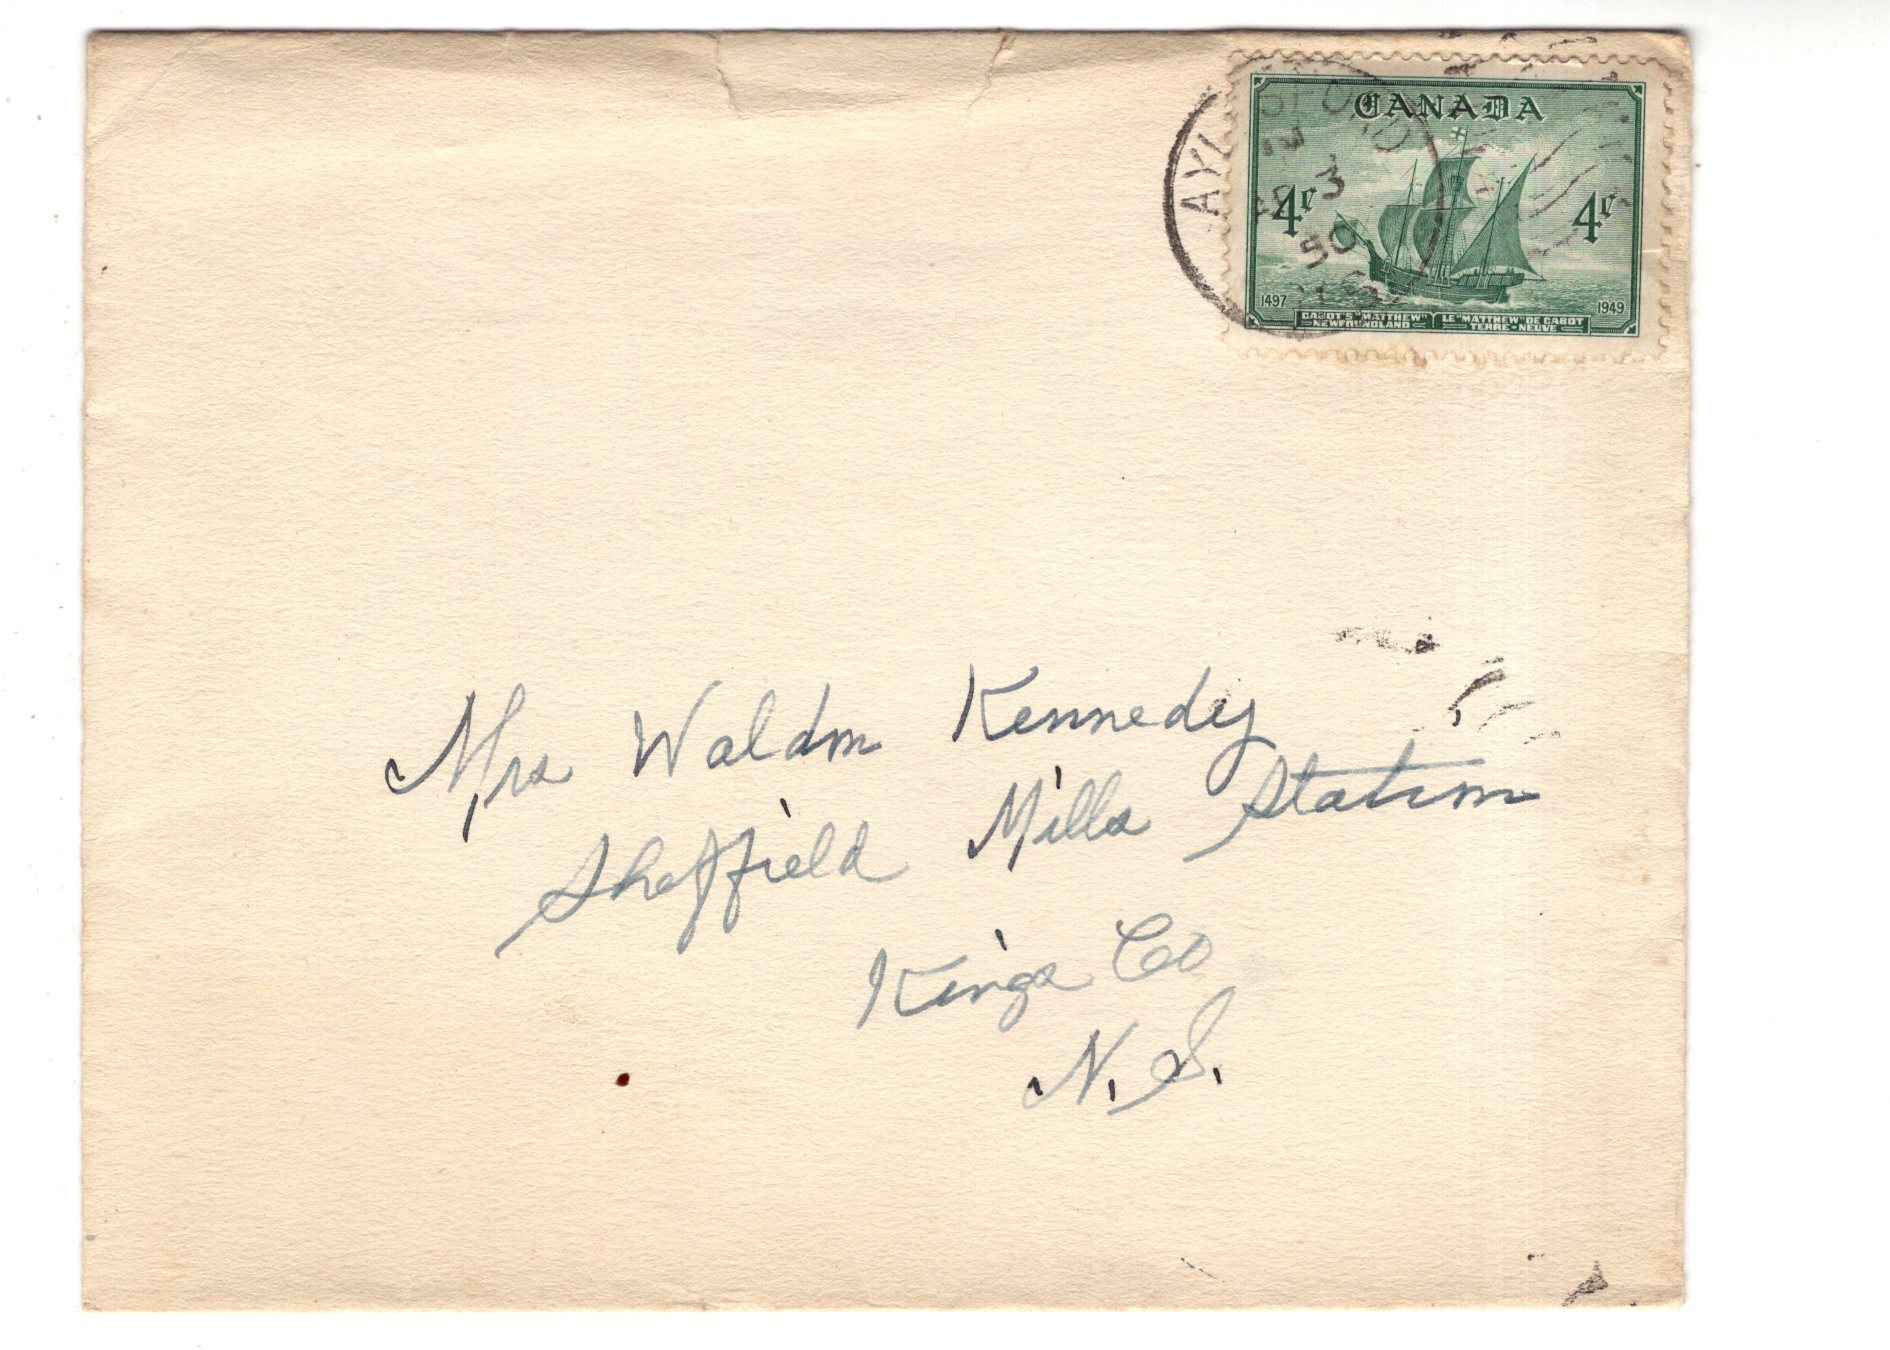 CANADA
4¢ 4¢
1497 1949
CABOT'S "MATTHEW" NEWFOUNDLAND
LE "MATTHEW" DE CABOT TERRE-NEUVE
AYLESFORD
3
50
Mrs Waldon Kennedy
Sheffield Mills Station
Kings Co
N. S.